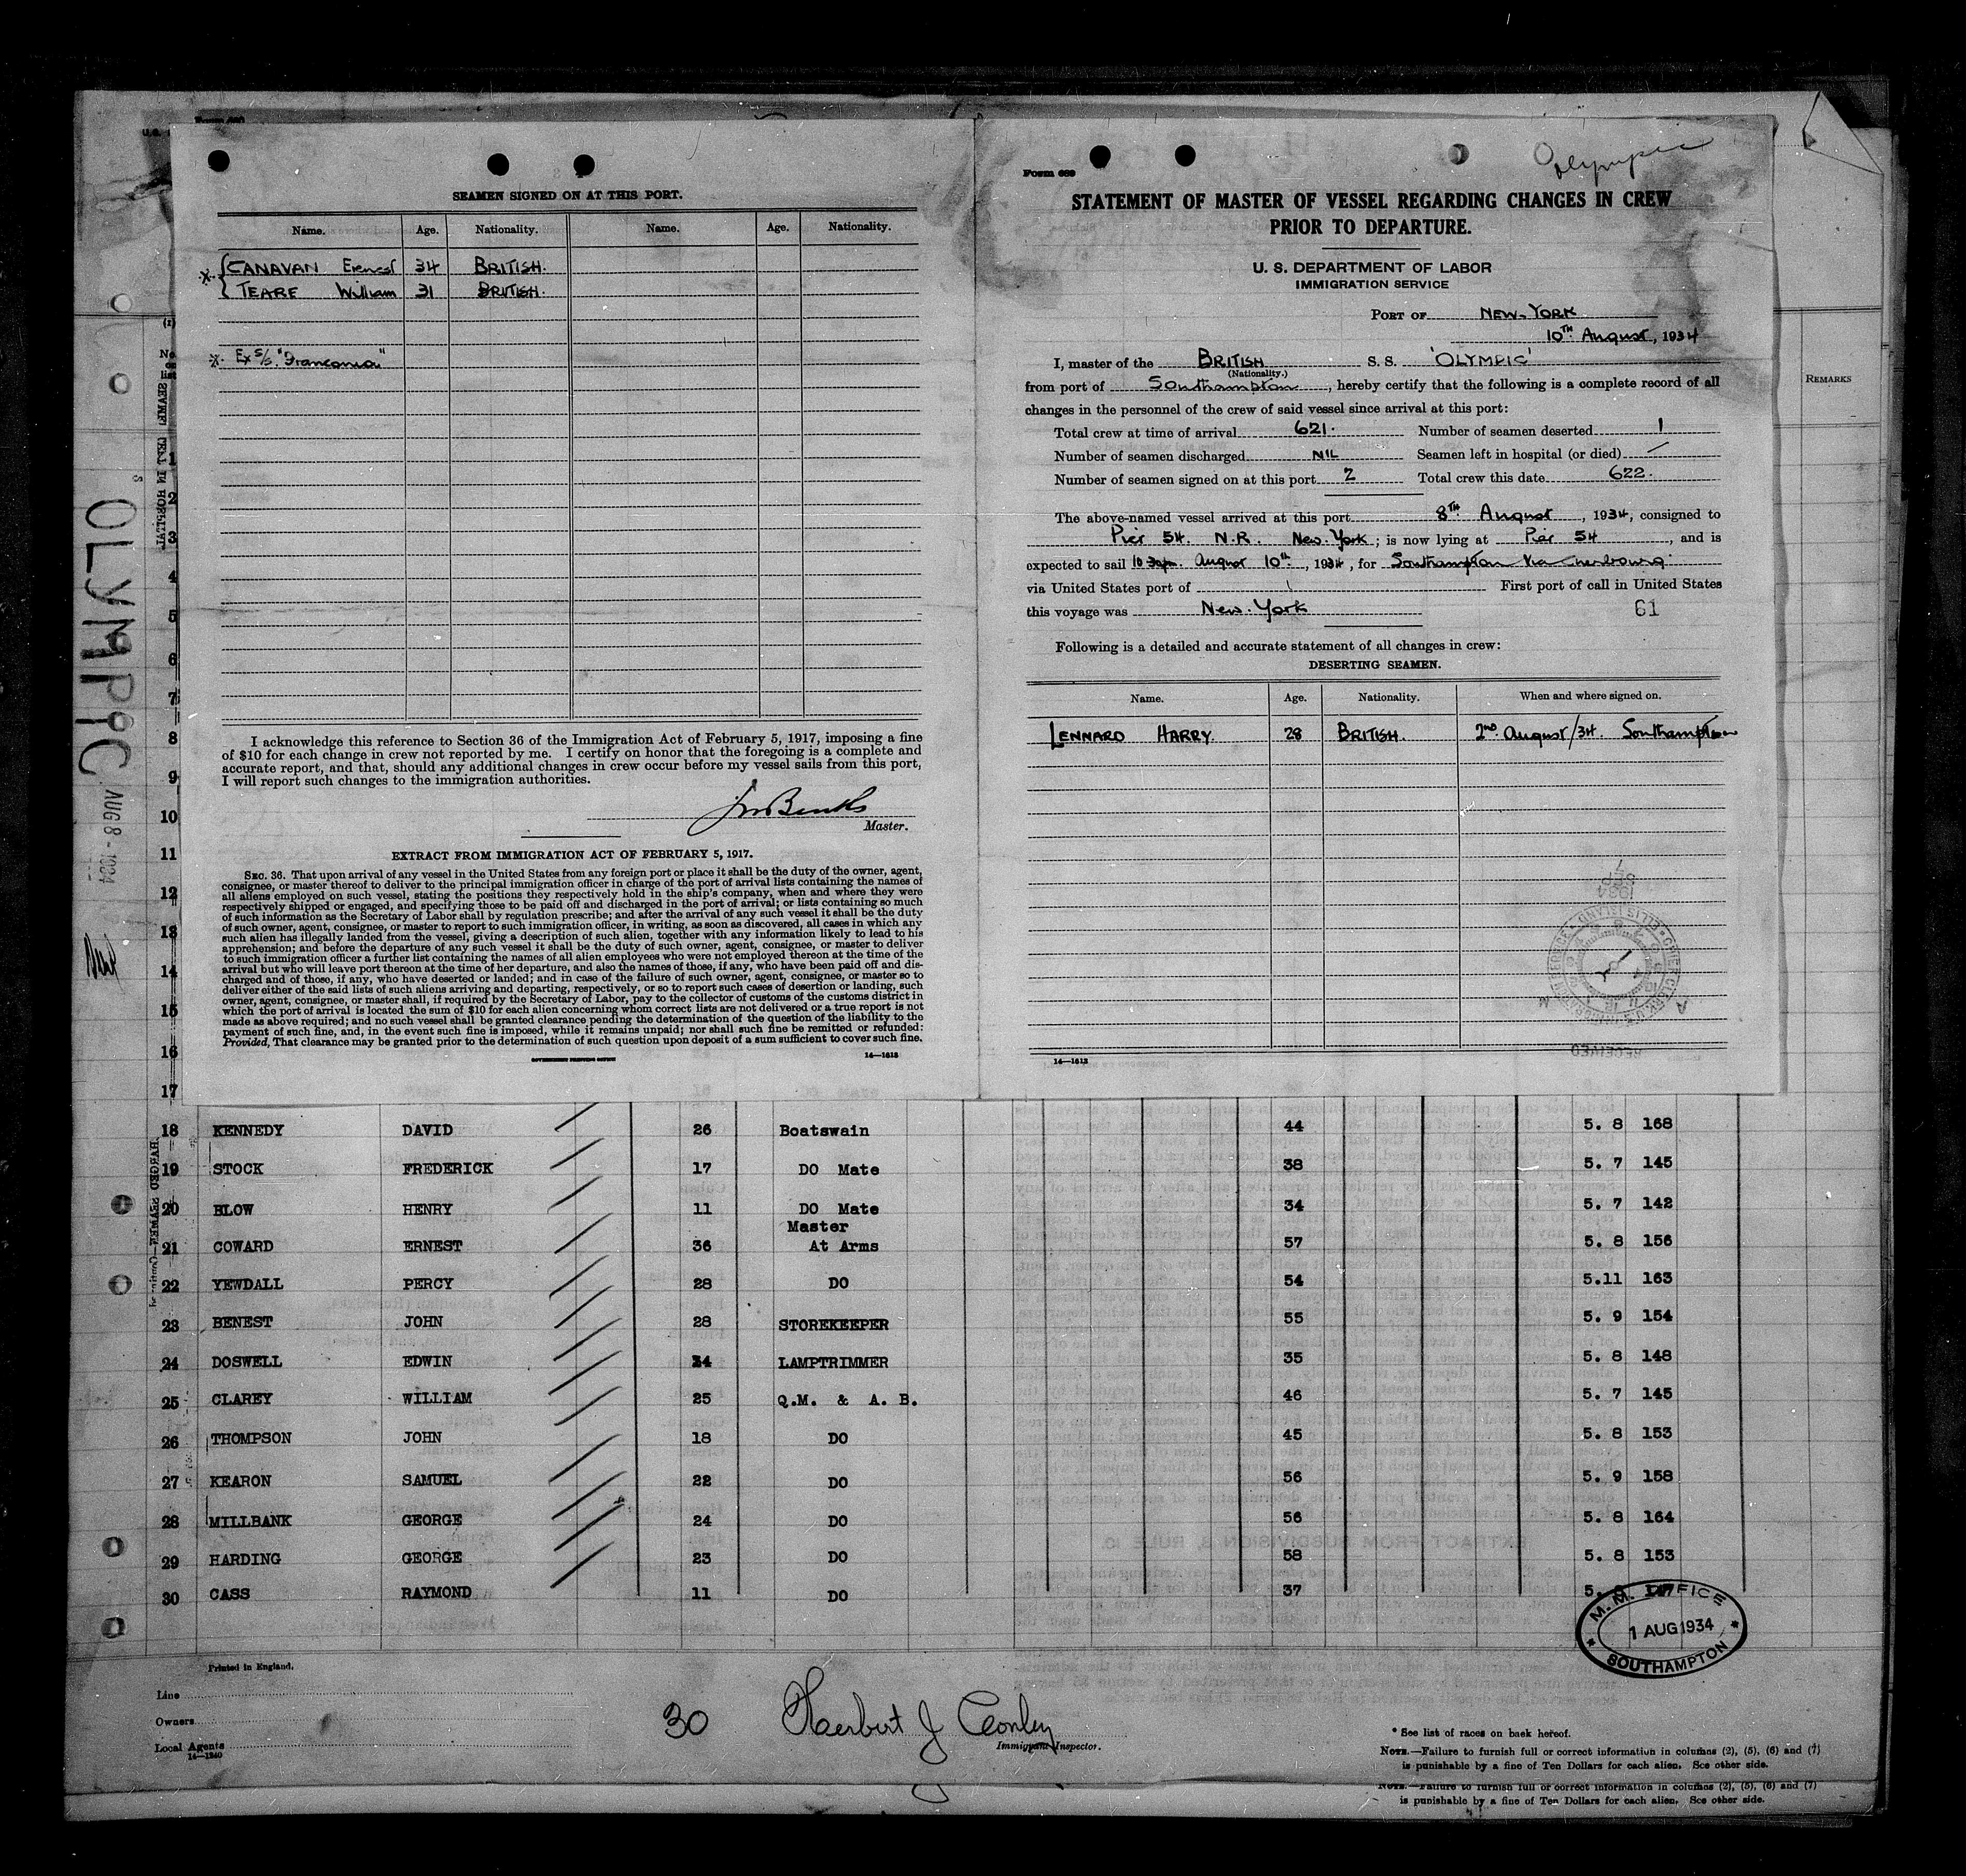 SEAMEN SIGNED ON AT THIS PORT.
Name. Age. Nationality. Name. Age. Nationality.
* { CANAVAN Ernest 34 BRITISH.
{ TEARE William 31 BRITISH.
* Ex S/S. "Franconia"
I acknowledge this reference to Section 36 of the Immigration Act of February 5, 1917, imposing a fine
of $10 for each change in crew not reported by me. I certify on honor that the foregoing is a complete and
accurate report, and that, should any additional changes in crew occur before my vessel sails from this port,
I will report such changes to the immigration authorities.
Master.
EXTRACT FROM IMMIGRATION ACT OF FEBRUARY 5, 1917.
SEC. 36. That upon arrival of any vessel in the United States from any foreign port or place it shall be the duty of the owner, agent,
consignee, or master thereof to deliver to the principal immigration officer in charge of the port of arrival lists containing the names of
all aliens employed on such vessel, stating the positions they respectively hold in the ship's company, when and where they were
respectively shipped or engaged, and specifying those to be paid off and discharged in the port of arrival; or lists containing so much
of such information as the Secretary of Labor shall by regulation prescribe; and after the arrival of any such vessel it shall be the duty
of such owner, agent, consignee, or master to report to such immigration officer, in writing, as soon as discovered, all cases in which any
such alien has illegally landed from the vessel, giving a description of such alien, together with any information likely to lead to his
apprehension; and before the departure of any such vessel it shall be the duty of such owner, agent, consignee, or master to deliver
to such immigration officer a further list containing the names of all alien employees who were not employed thereon at the time of the
arrival but who will leave port thereon at the time of her departure, and also the names of those, if any, who have been paid off and dis-
charged and of those, if any, who have deserted or landed; and in case of the failure of such owner, agent, consignee, or master so to
deliver either of the said lists of such aliens arriving and departing, respectively, or so to report such cases of desertion or landing, such
owner, agent, consignee, or master shall, if required by the Secretary of Labor, pay to the collector of customs of the customs district in
which the port of arrival is located the sum of $10 for each alien concerning whom correct lists are not delivered or a true report is not
made as above required; and no such vessel shall be granted clearance pending the determination of the question of the liability to the
payment of such fine, and, in the event such fine is imposed, while it remains unpaid; nor shall such fine be remitted or refunded:
Provided, That clearance may be granted prior to the determination of such question upon deposit of a sum sufficient to cover such fine.
GOVERNMENT PRINTING OFFICE 14—1613
Form 689
Olympic
STATEMENT OF MASTER OF VESSEL REGARDING CHANGES IN CREW
PRIOR TO DEPARTURE.
U. S. DEPARTMENT OF LABOR
IMMIGRATION SERVICE
PORT OF NEW-YORK
10TH August, 1934
I, master of the BRITISH S. S. 'OLYMPIC'
(Nationality.)
from port of Southampton, hereby certify that the following is a complete record of all
changes in the personnel of the crew of said vessel since arrival at this port:
Total crew at time of arrival 621. Number of seamen deserted 1
Number of seamen discharged NIL Seamen left in hospital (or died) /
Number of seamen signed on at this port 2 Total crew this date 622.
The above-named vessel arrived at this port 8TH August, 1934, consigned to
Pier 54. N.R. New-York; is now lying at Pier 54, and is
expected to sail 10 30pm. August 10th, 1934, for Southampton Via Cherbourg
via United States port of First port of call in United States
this voyage was New-York 61
Following is a detailed and accurate statement of all changes in crew:
DESERTING SEAMEN.
Name. Age. Nationality. When and where signed on.
LENNARD HARRY 28 BRITISH. 2nd August/34. Southampton
14—1613
REMARKS
OLYMPIC AUG 8 - 1934
(1)
No.
on
list
1
2
3
4
5
6
7
8
9
10
11
12
13
14
15
16
17
18 KENNEDY DAVID 26 Boatswain 44 5. 8 168
19 STOCK FREDERICK 17 DO Mate 38 5. 7 145
20 BLOW HENRY 11 DO Mate 34 5. 7 142
21 COWARD ERNEST 36 Master At Arms 57 5. 8 156
22 YEWDALL PERCY 28 DO 54 5.11 163
23 BENEST JOHN 28 STOREKEEPER 55 5. 9 154
24 DOSWELL EDWIN 14 LAMPTRIMMER 35 5. 8 148
25 CLAREY WILLIAM 25 Q.M. & A. B. 46 5. 7 145
26 THOMPSON JOHN 18 DO 45 5. 8 153
27 KEARON SAMUEL 22 DO 56 5. 9 158
28 MILLBANK GEORGE 24 DO 56 5. 8 164
29 HARDING GEORGE 23 DO 58 5. 8 153
30 CASS RAYMOND 11 DO 37 5.
M. M. OFFICE
1 AUG 1934
SOUTHAMPTON
Printed in England.
Line
Owners
Local Agents
14—1240
30 Herbert J Conley
Immigrant Inspector.
* See list of races on back hereof.
NOTE.—Failure to furnish full or correct information in columns (2), (5), (6) and (7)
is punishable by a fine of Ten Dollars for each alien. See other side.
NOTE.—Failure to furnish full or correct information in columns (2), (5), (6) and (7)
is punishable by a fine of Ten Dollars for each alien. See other side.